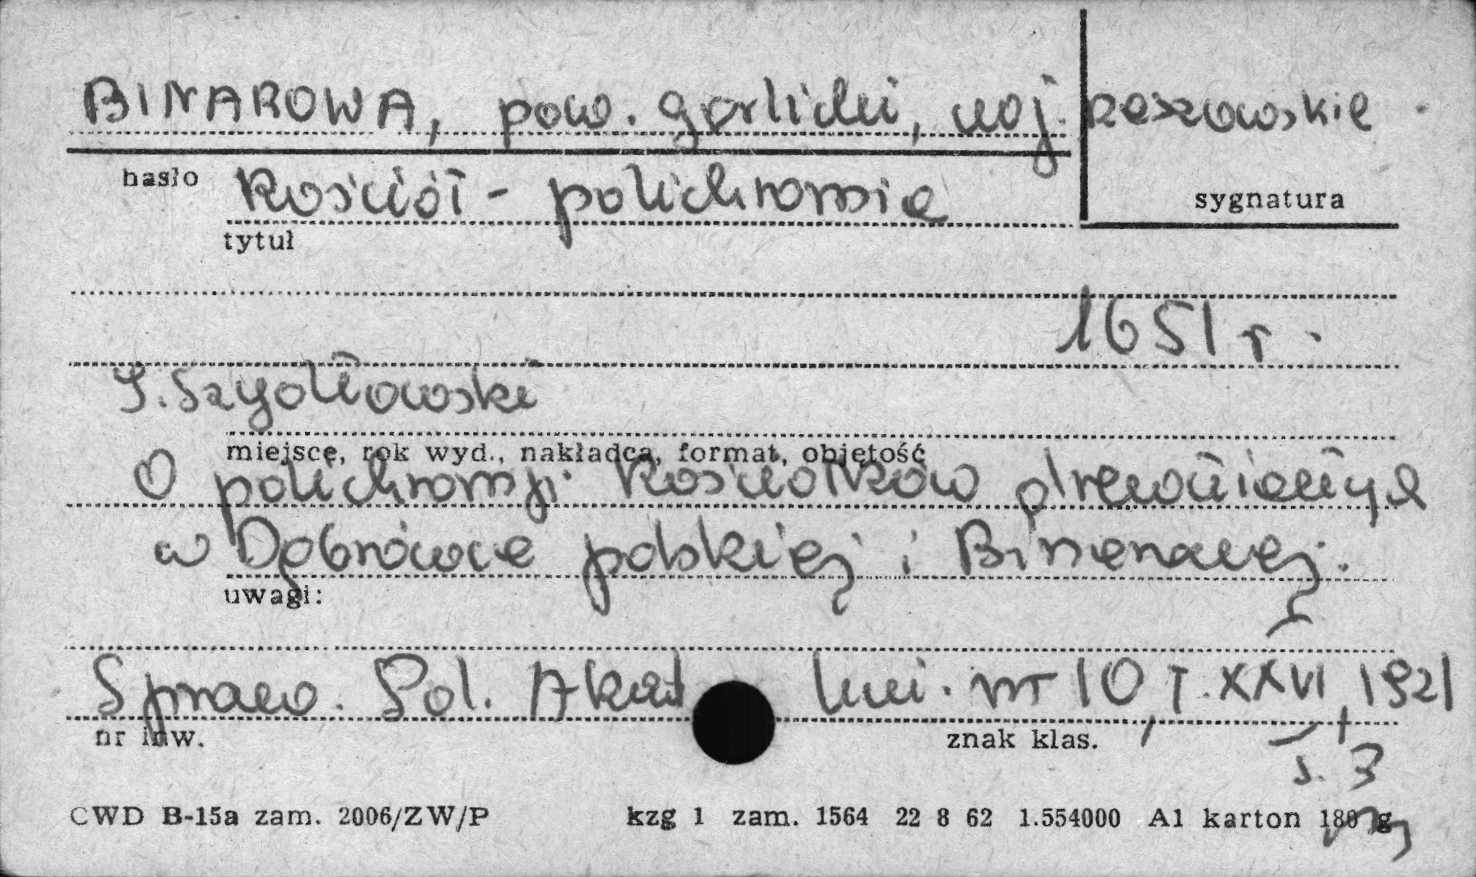 BINAROWA, pow. gorlicki, woj. rzeszowskie.
hasło
Kościół - polichromia
sygnatura
tytuł
1651 r.
T. Szydłowski
miejsce, rok wyd., nakładca, format, objętość
O polichromji kościołków drewnianych
w Dębnówce polskiej i Binarowej.
uwagi:
Spraw. Pol. Akad. Um. nr 10, T. XXVI, 1921
nr inw.
znak klas.
s. 3
CWD B-15a zam. 2006/ZW/P
kzg 1 zam. 1564 22 8 62 1.554000 A1 karton 180 g